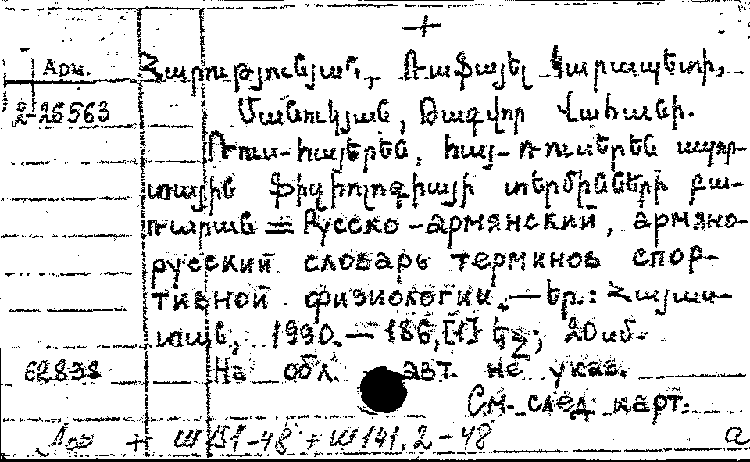 +
Арм. Հարությունյան, Ռաֆայել Կարապետի,
2-26563 Մանուկյան, Թագվոր Վահանի.
Ռուս-հայերեն, հայ-ռուսերեն սպոր-
տային ֆիզիոլոգիայի տերմինների բա-
ռարան = Русско-армянский, армяно-
русский словарь терминов спор-
тивной физиологии. — Եր.: Հայաս-
տան, 1990. — 186,[1] եջ; 20 սմ.
62838 На обл. авт. не указ.
См. след. карт.
+ Ш151-48 + Ш141.2-48 а